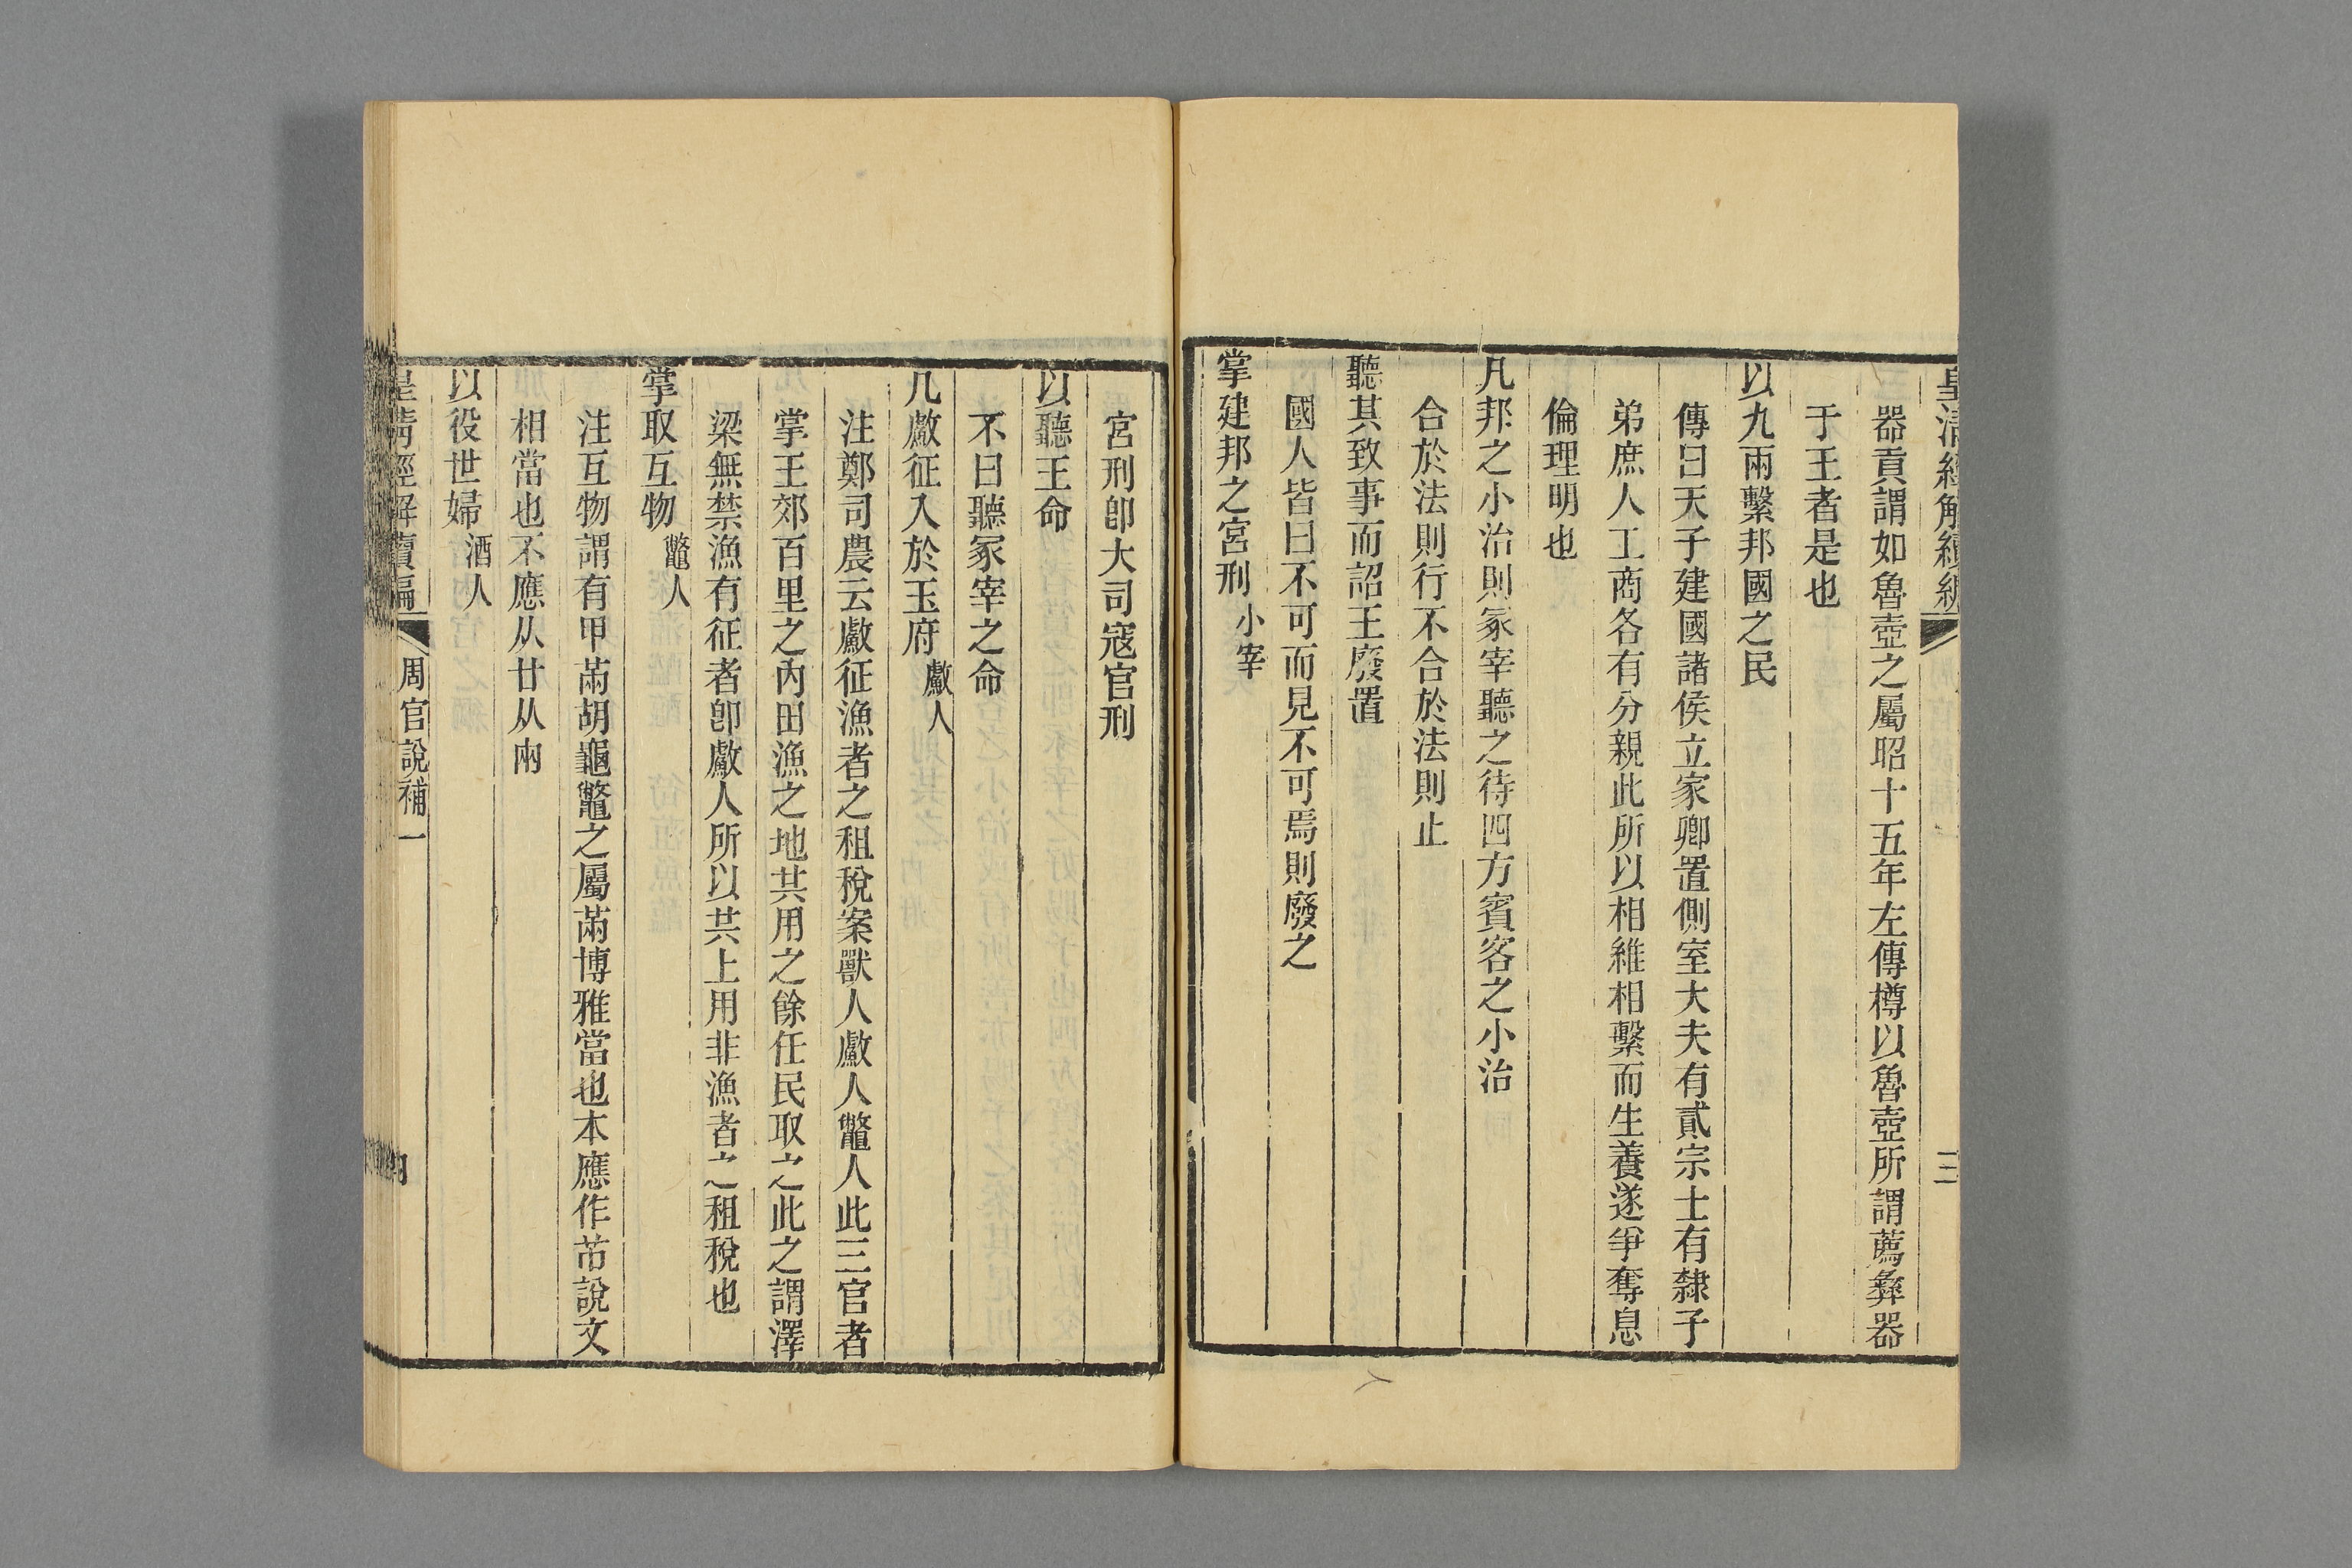 皇清經解續編
三
器貢謂如魯壺之屬昭十五年左傳樽以魯壺所謂薦彝器
于王者是也
以九兩繫邦國之民
傳曰天子建國諸侯立家卿置側室大夫有貳宗士有隸子
弟庶人工商各有分親此所以相維相繫而生養遂爭奪息
倫理明也
凡邦之小治則冢宰聽之待四方賓客之小治
合於法則行不合於法則止
聽其致事而詔王廢置
國人皆曰不可而見不可焉則廢之
掌建邦之宮刑 小宰
宮刑卽大司寇官刑
以聽王命
不曰聽冢宰之命
凡䱷征入於玉府 䱷人
注鄭司農云䱷征漁者之租稅案獸人䱷人鼈人此三官者
掌王郊百里之內田漁之地共用之餘任民取之此之謂澤
梁無禁漁有征者卽䱷人所以共上用非漁者之租稅也
掌取互物 鼈人
注互物謂有甲㒼胡龜鼈之屬㒼博雅當也本應作㒼說文
相當也不應从廿从㒳
以役世婦 酒人
皇清經解續編
周官說補一
四